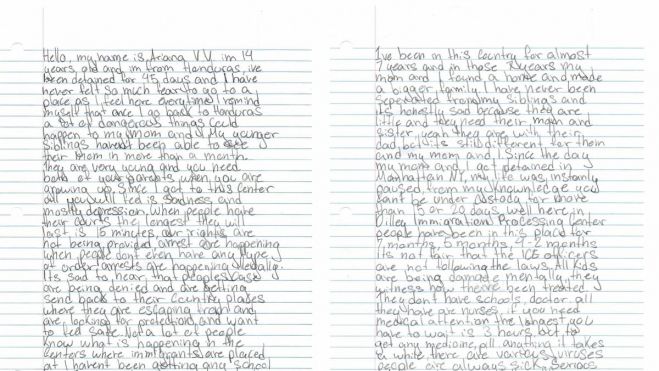 Hello, my name is Ariana V.V. im 14
years, old and im from Honduras, ive
been detained for 45 days and I have
never felt so much fear to go to a
place as I feel here everytime I remind
myself that once I go back to Honduras
a lot of dangerous things could
happen to my mom and My younger
siblings havent been able to see
their mom in more than a month.
They are very young and you need
both of your parents when you are
growing up, Since I got to this Center
all you will feel is sadness, and
mostly depression. When people have
their courts the longest they will
last is 15 minutes, our rights are
not being provided arrest are happening
when people dont even have any type
of order, arrests are happening illegally.
Its sad to hear that peoples case
are being denied and are getting
send back to their Country places
where they are escaping from and
are looking for protection, and want
to feel safe. Not a lot of people
know what is happening in the
Centers where immigrants are placed
at I havent been getting any school
I've been in this Country for almost
7 years and in those years my
mom and I found a home and made
a bigger family I have never been
seperated from my siblings and
its honestly sad because they are
little and they need their mom and
sister, yeah they are with their
dad, but its still different for them
and my mom and I. Since the day
my mom and I got detained in
Manhattan NY, my life was instantly
paused, from my knowledge you
cant be under custody for more
than 15 or 20 days, well here in
Dilley Immigration Processing Center
people have been in this place for
7 months, 5 months, 9-2 months
its not fair that the ICE officers
are not following the laws. All kids
are being damage mentally, they
witness how theire been treated
They dont have schools, doctor all
they have are nurses, if you need
medical attention the longest you
have to wait is 3 hours, but to
get any medicine, pill, anything it takes
a while there are various viruses
people are always sick, Serious